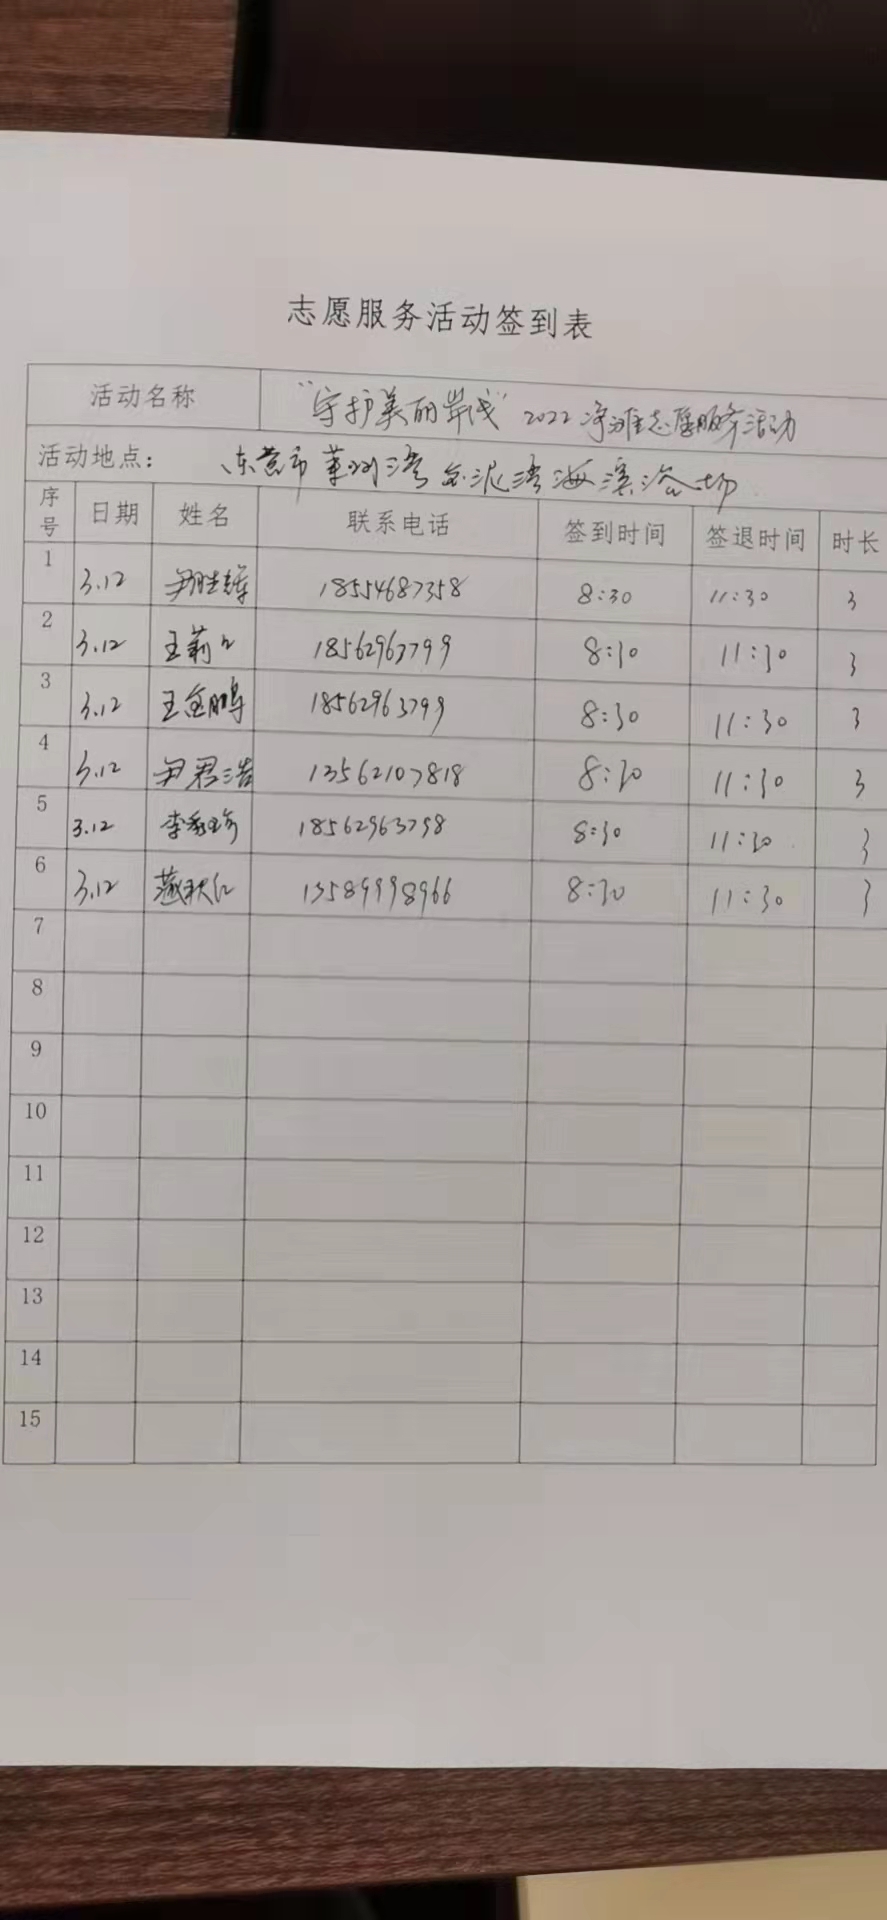 志愿服务活动签到表
活动名称 "守护美丽岸线"2022净滩志愿服务活动
活动地点: 东营市莱州湾金泥湾海滨浴场
序号 日期 姓名 联系电话 签到时间 签退时间 时长
1 3.12 尹胜辉 18554687358 8:30 11:30 3
2 3.12 王莉 18562963799 8:30 11:30 3
3 3.12 王金鹏 18562963799 8:30 11:30 3
4 3.12 尹君浩 13562107818 8:30 11:30 3
5 3.12 李秀珍 18562963798 8:30 11:30 3
6 3.12 13589998966 8:30 11:30 3
7
8
9
10
11
12
13
14
15